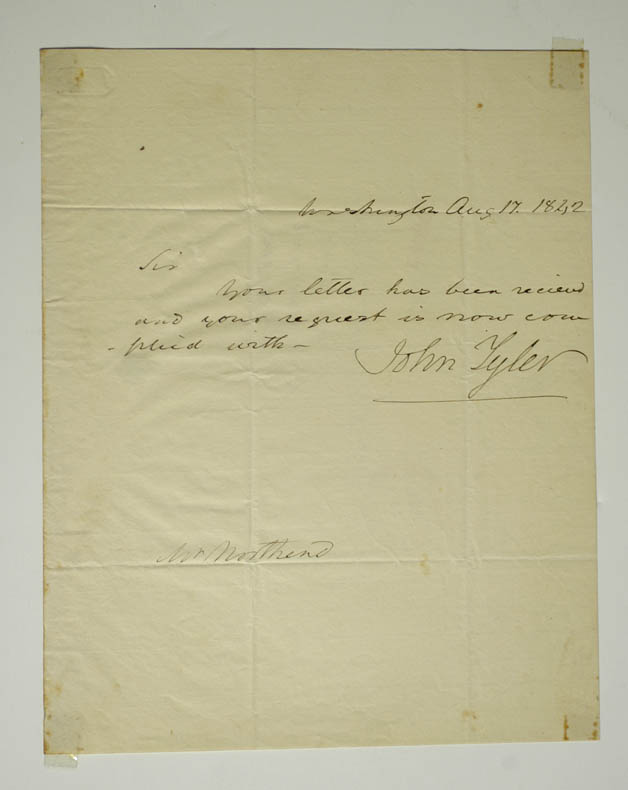 Washington Aug 17. 1842
Sir
Your letter has been recievd
and your request is now com
-plied with-
John Tyler
Mr Northend